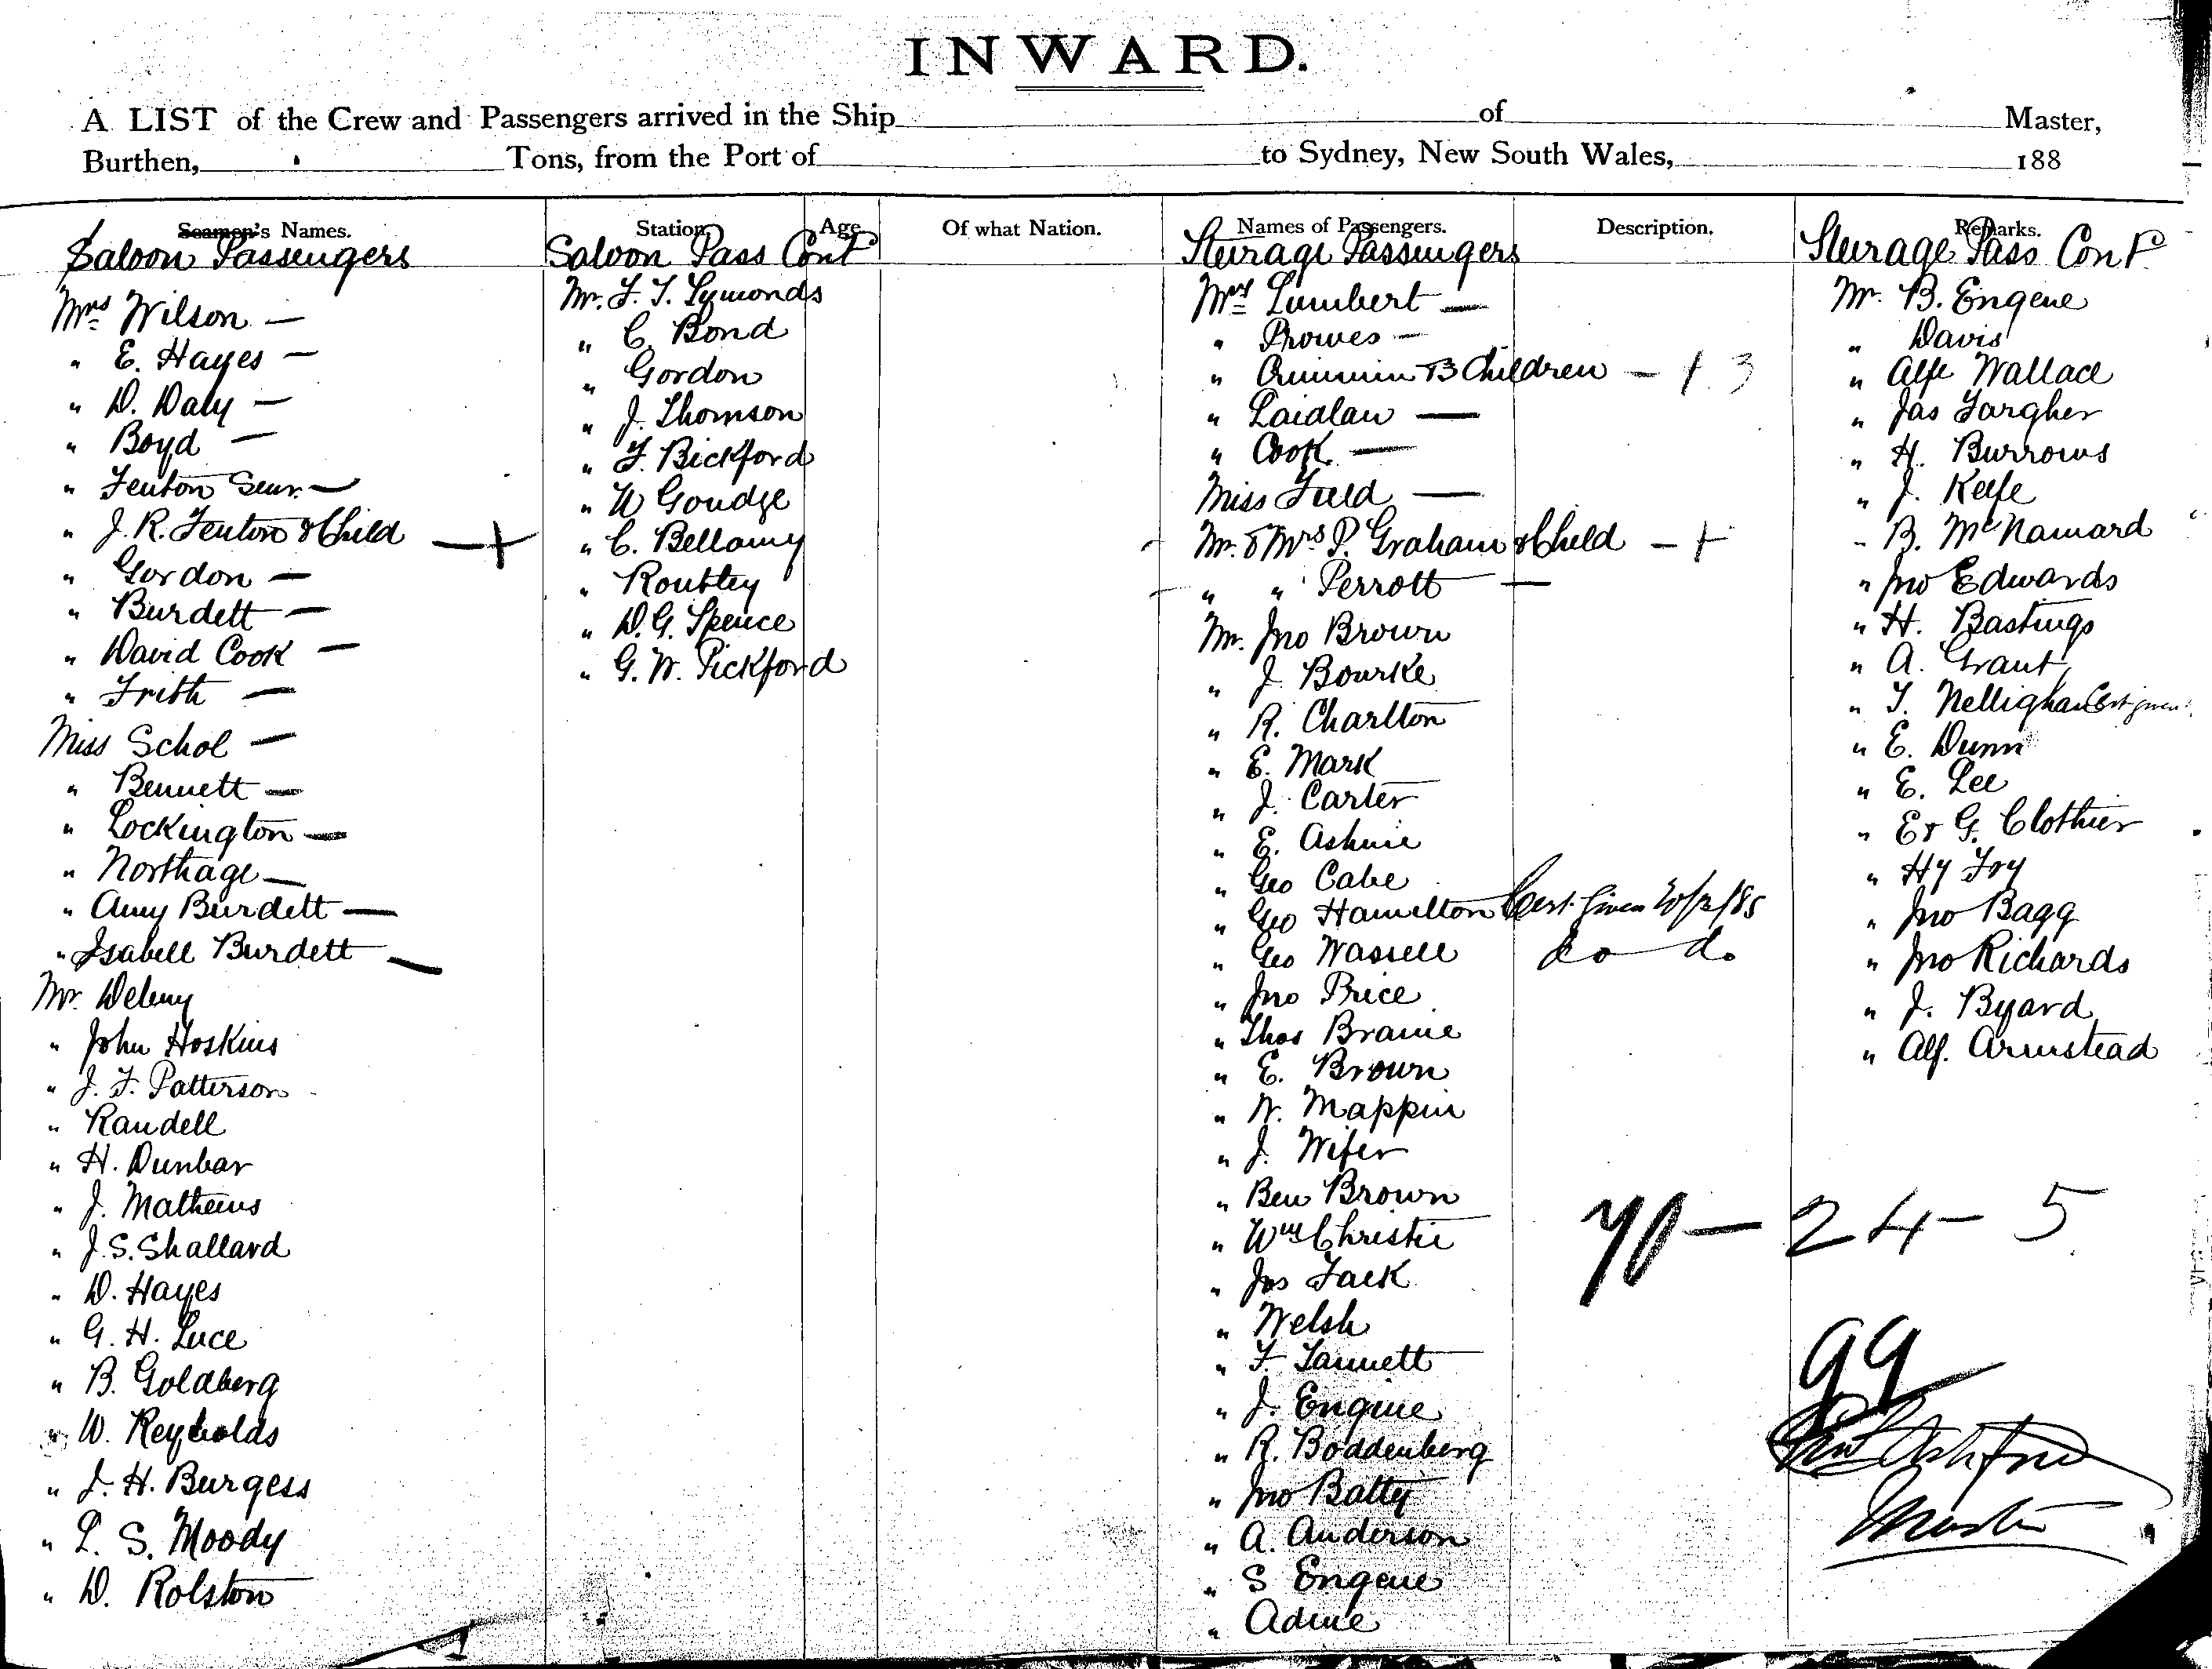 INWARD.
A LIST of the Crew and Passengers arrived in the Ship of Master,
Burthen, Tons, from the Port of to Sydney, New South Wales, 188
Seamen's Names.
Saloon Passengers
Mrs Wilson —
" E. Hayes —
" D. Daly —
" Boyd —
" Fenton Senr. —
" J. R. Fenton & Child — +
" Gordon —
" Burdett —
" David Cook —
" Frith —
Miss Schol —
" Bennett —
" Lockington —
" Northage —
" Amy Burdett —
" Isabell Burdett —
Mr. Deleny
" John Hoskins
" J. F. Patterson
" Randell
" H. Dunbar
" J. Mathews
" J. S. Shallard
" D. Hayes
" G. H. Luce
" B. Goldberg
" W. Reynolds
" J. H. Burgess
" L. S. Moody
" D. Rolston
Station. Age
Saloon Pass Cont
Mr. F. T. Symonds
" C. Bond
" Gordon
" J. Thomson
" F. Bickford
" W Goudge
" C. Bellamy
" Roubley
" D. G. Spence
" G. W. Pickford
Of what Nation.
Names of Passengers.
Steerage Passengers
Mrs Lambert —
" Prowes —
" 3 Children — + 3
" Laidlaw —
" Cook. —
Miss Field —
Mr. & Mrs P. Graham & Child — +
" " Perrott —
Mr. Jno Brown
" J. Bourke
" R. Charlton
" E. Mark
" J. Carter
" E. Ashwie
" Geo Cabe
" Geo Hamilton Cert. Given
" Geo Wassell do do
" Jno Price
" Thos Braine
" E. Brown
" W. Mappin
" J. Wifer
" Ben Brown
" Wm Christie
" Jos Jack
" Welsh
" F. Tannett
" J. Engene
" R. Boddenberg
" Jno Batty
" A. Anderson
" S Engene
" Adine
Description.
Remarks.
Steerage Pass Cont
Mr. B. Engene
" Davis
" Alfe Wallace
" Jas Fargher
" H. Burrows
" J. Keefe
" B. McNamard
" Jno Edwards
" H. Bastings
" A. Grant
" T. Nellighan Cert given
" E. Dunn
" E. Lee
" E & G. Clothier
" Hy Foy
" Jno Bagg
" Jno Richards
" J. Byard
" Alf. Armstead
70 — 24 — 5
99
Ashford
Master